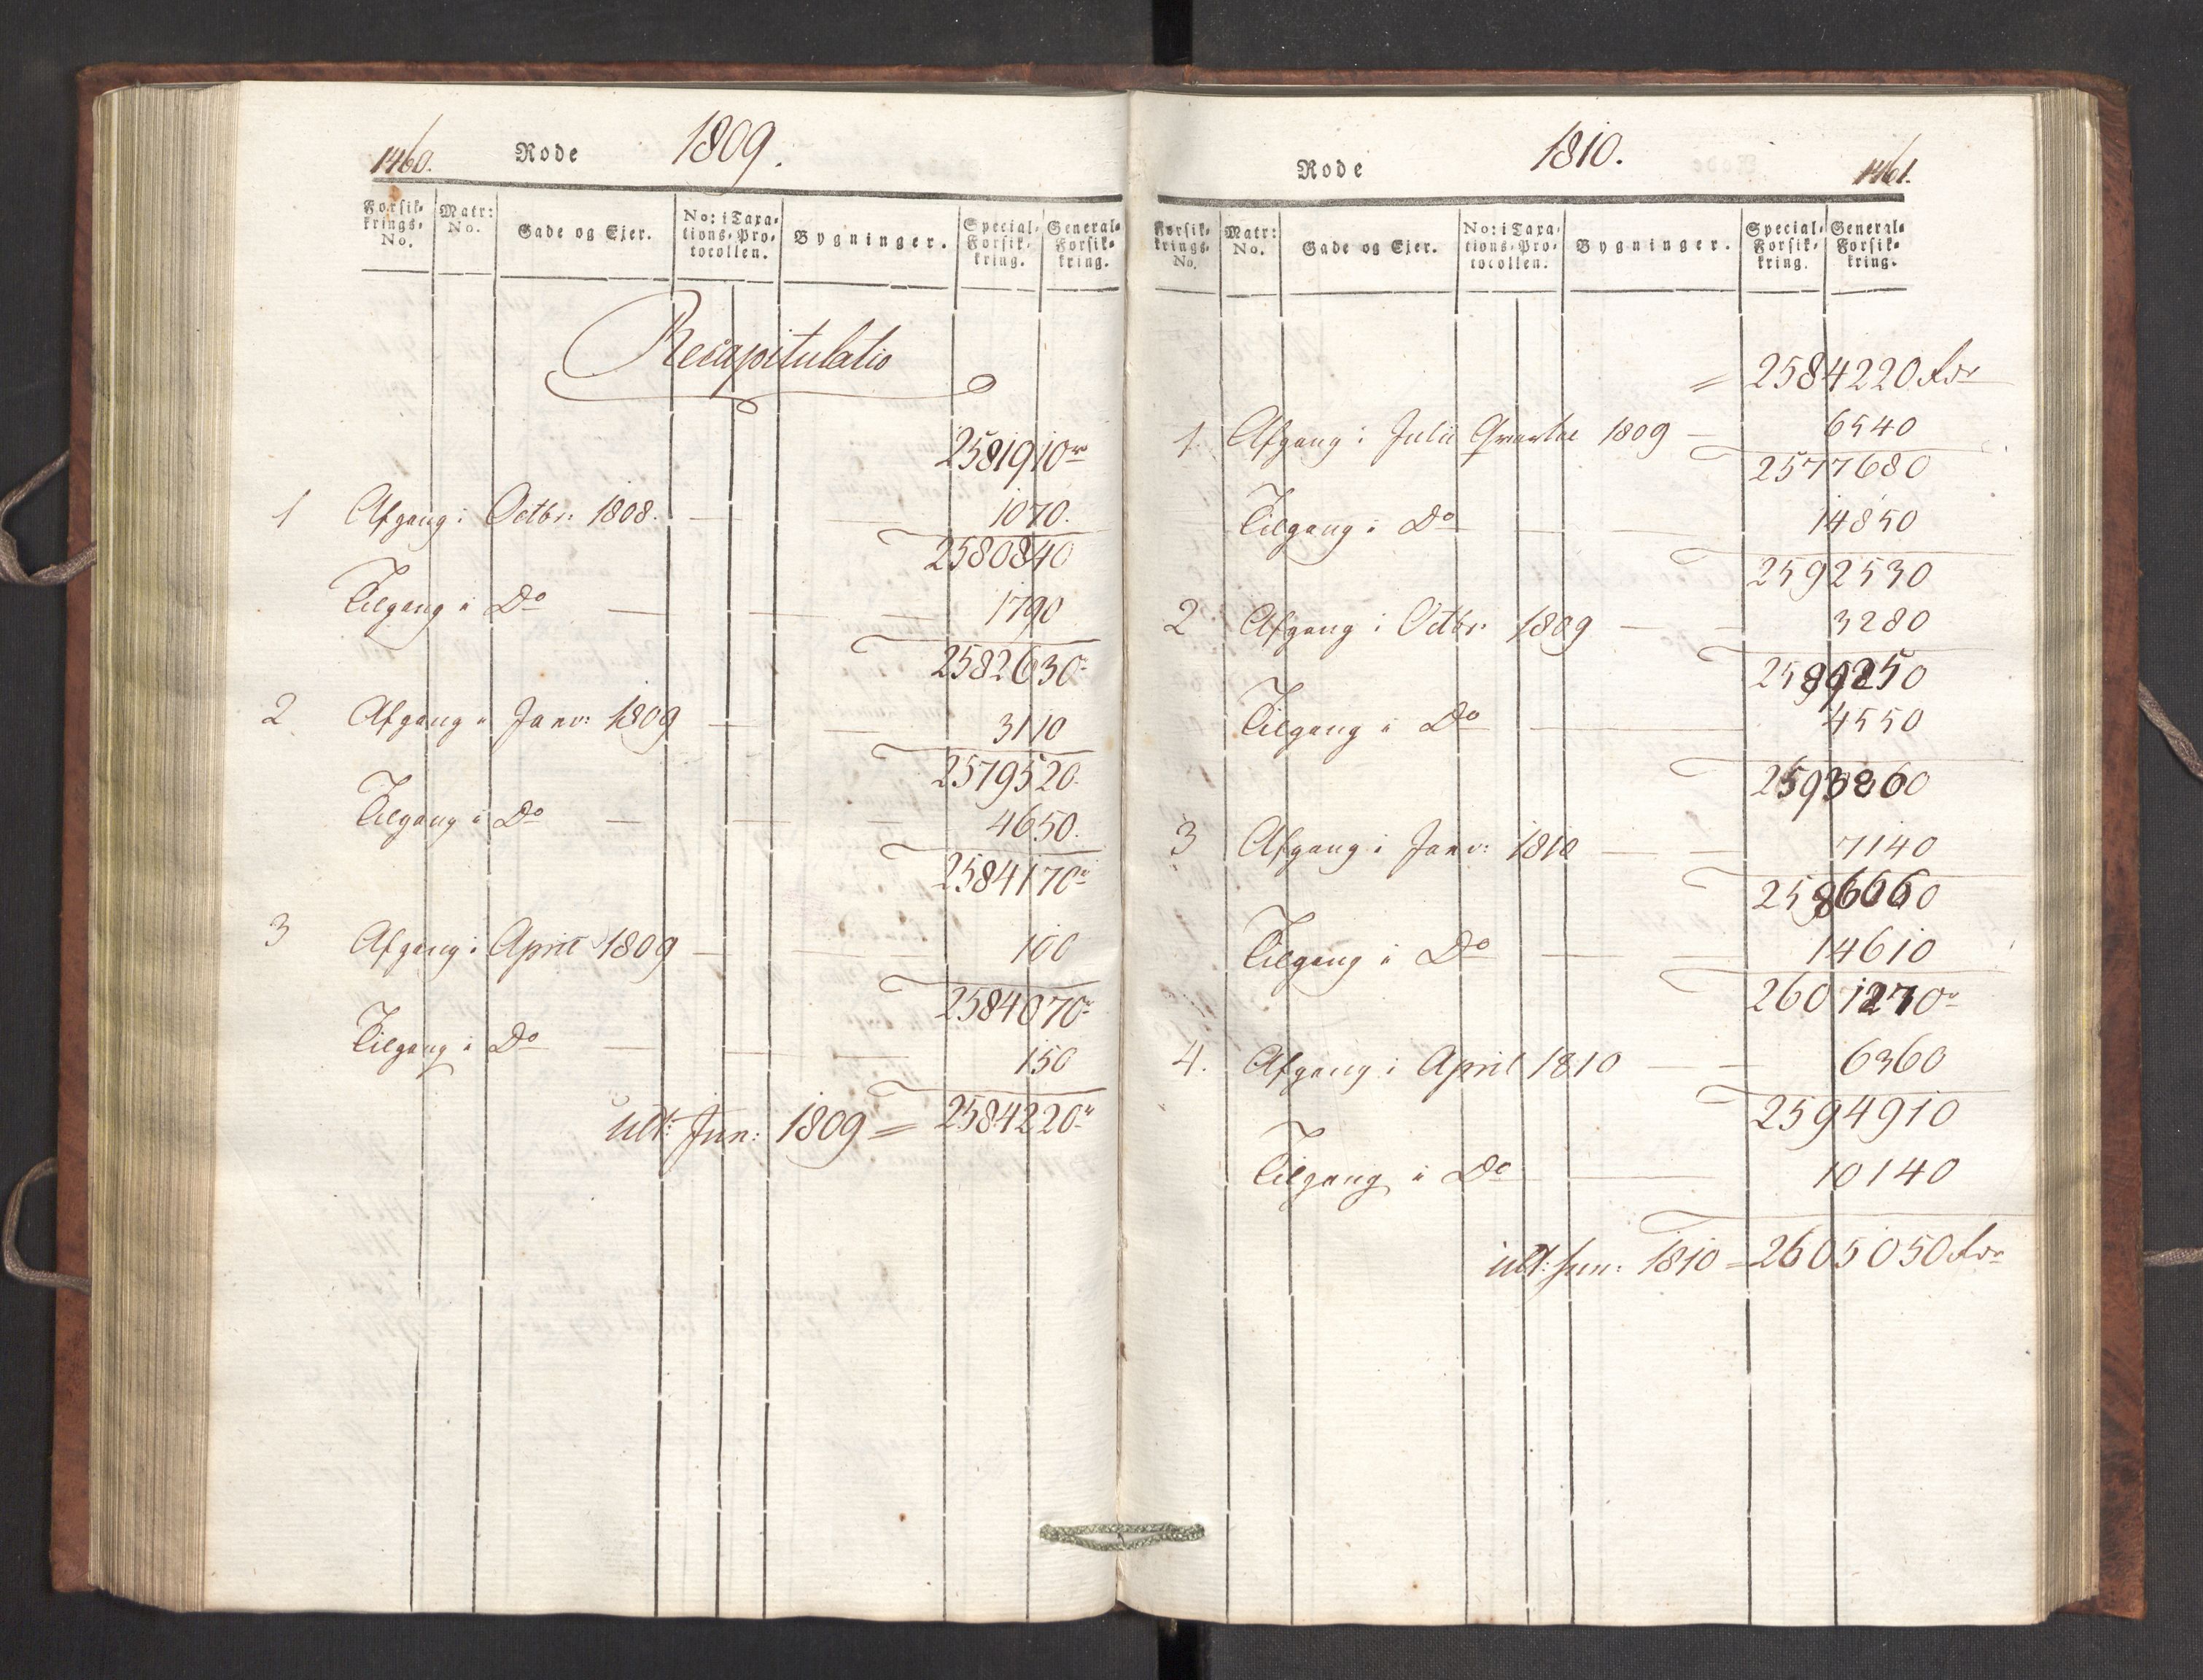 1460.
Rode 1809.
Forsik-
krings-
No.
Matr:
No.
Gade og Ejer.
No: i Taxa-
tions-Pro-
tocollen.
Bygninger.
Special-
Forsik-
kring.
General-
Forsik-
kring.
Recapitulatio
2581910
1 Afgang i Octbr: 1808. — 1070.
2580840
Tilgang i Do — — — 1790
2582630
2 Afgang i Janv: 1809 — — 3110
2579520.
Tilgang i Do — — — 4650.
2584170
3 Afgang i April 1809 — — — 100
2584070
Tilgang i Do — — — 150
ult: Jun: 1809 = 2584220
Rode 1810.
1461.
Forsik-
krings-
No.
Matr:
No.
Gade og Ejer.
No: i Taxa-
tions-Pro-
tocollen.
Bygninger.
Special-
Forsik-
kring.
General-
Forsik-
kring.
= 2584220 Rdr
1. Afgang i Julii Qvartal 1809 — 6540
2577680
Tilgang i Do — — 14850
2592530
2 Afgang i Octbr: 1809 — — 3280
2589250
Tilgang i Do — 4550
2593800
3 Afgang i Janv: 1810 — — 7140
2586660
Tilgang i Do — — 14610
2601270
4. Afgang i April 1810 — — 6360
2594910
Tilgang i Do — 10140
ult: Jun: 1810 = 2605050 Rdr